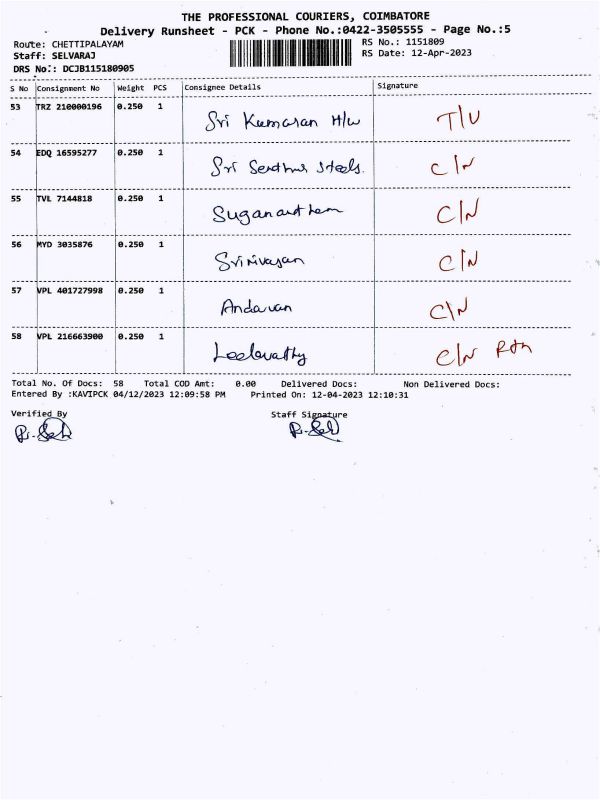 THE PROFESSIONAL COURIERS, COIMBATORE
Delivery Runsheet - PCK - Phone No.:0422-3505555 - Page No.:5
Route: CHETTIPALAYAM RS No.: 1151809
Staff: SELVARAJ RS Date: 12-Apr-2023
DRS No.: DCJB115180905
S No Consignment No Weight PCS Consignee Details Signature
53 TRZ 210000196 0.250 1 Sri Kumaran H/w T/U
54 EDQ 16595277 0.250 1 Sri Senthur Steels. C/N
55 TVL 7144818 0.250 1 Suganantham C/N
56 MYD 3035876 0.250 1 Srinivasan C/N
57 VPL 401727998 0.250 1 Andavan C/N
58 VPL 216663900 0.250 1 Leelavathy C/N Rtn
Total No. Of Docs: 58 Total COD Amt: 0.00 Delivered Docs: Non Delivered Docs:
Entered By :KAVIPCK 04/12/2023 12:09:58 PM Printed On: 12-04-2023 12:10:31
Verified By Staff Signature